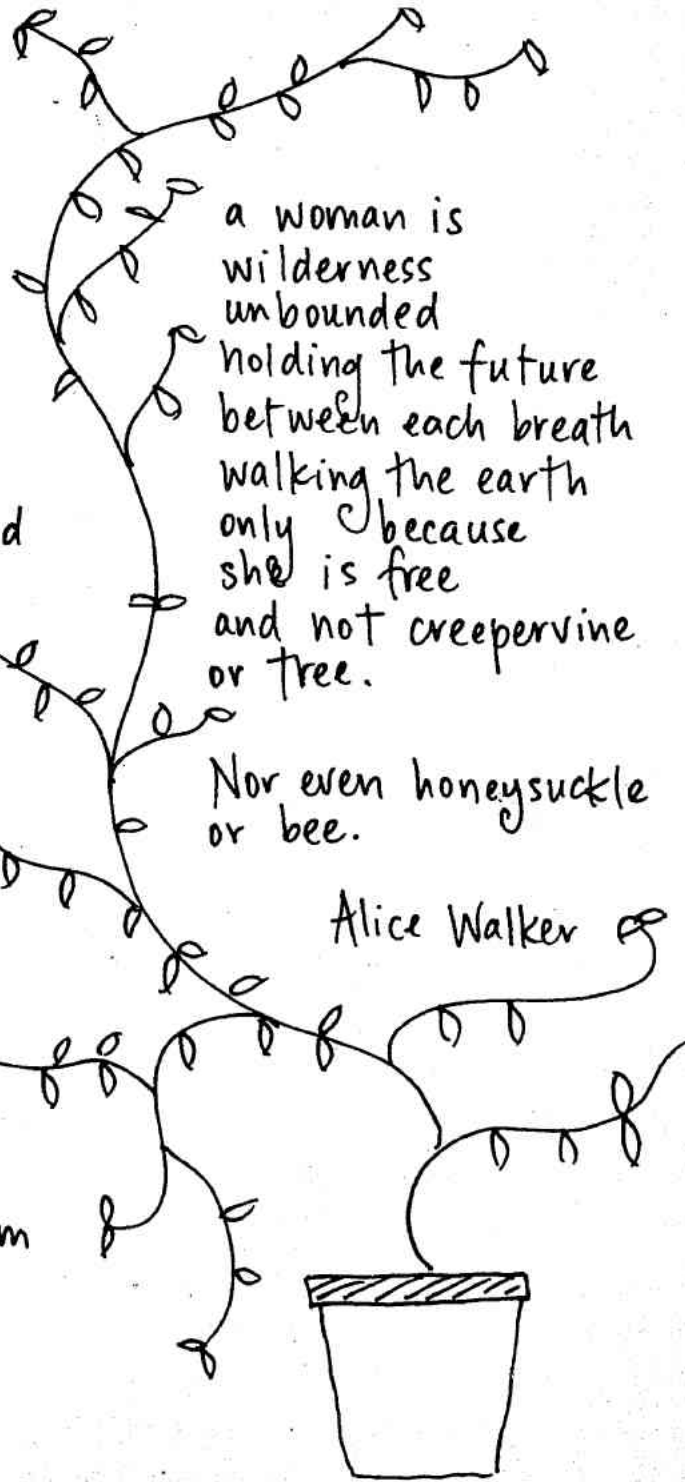 a woman is
wilderness
unbounded
holding the future
between each breath
walking the earth
only because
she is free
and not creepervine
or tree.
Nor even honeysuckle
or bee.
Alice Walker
d
m